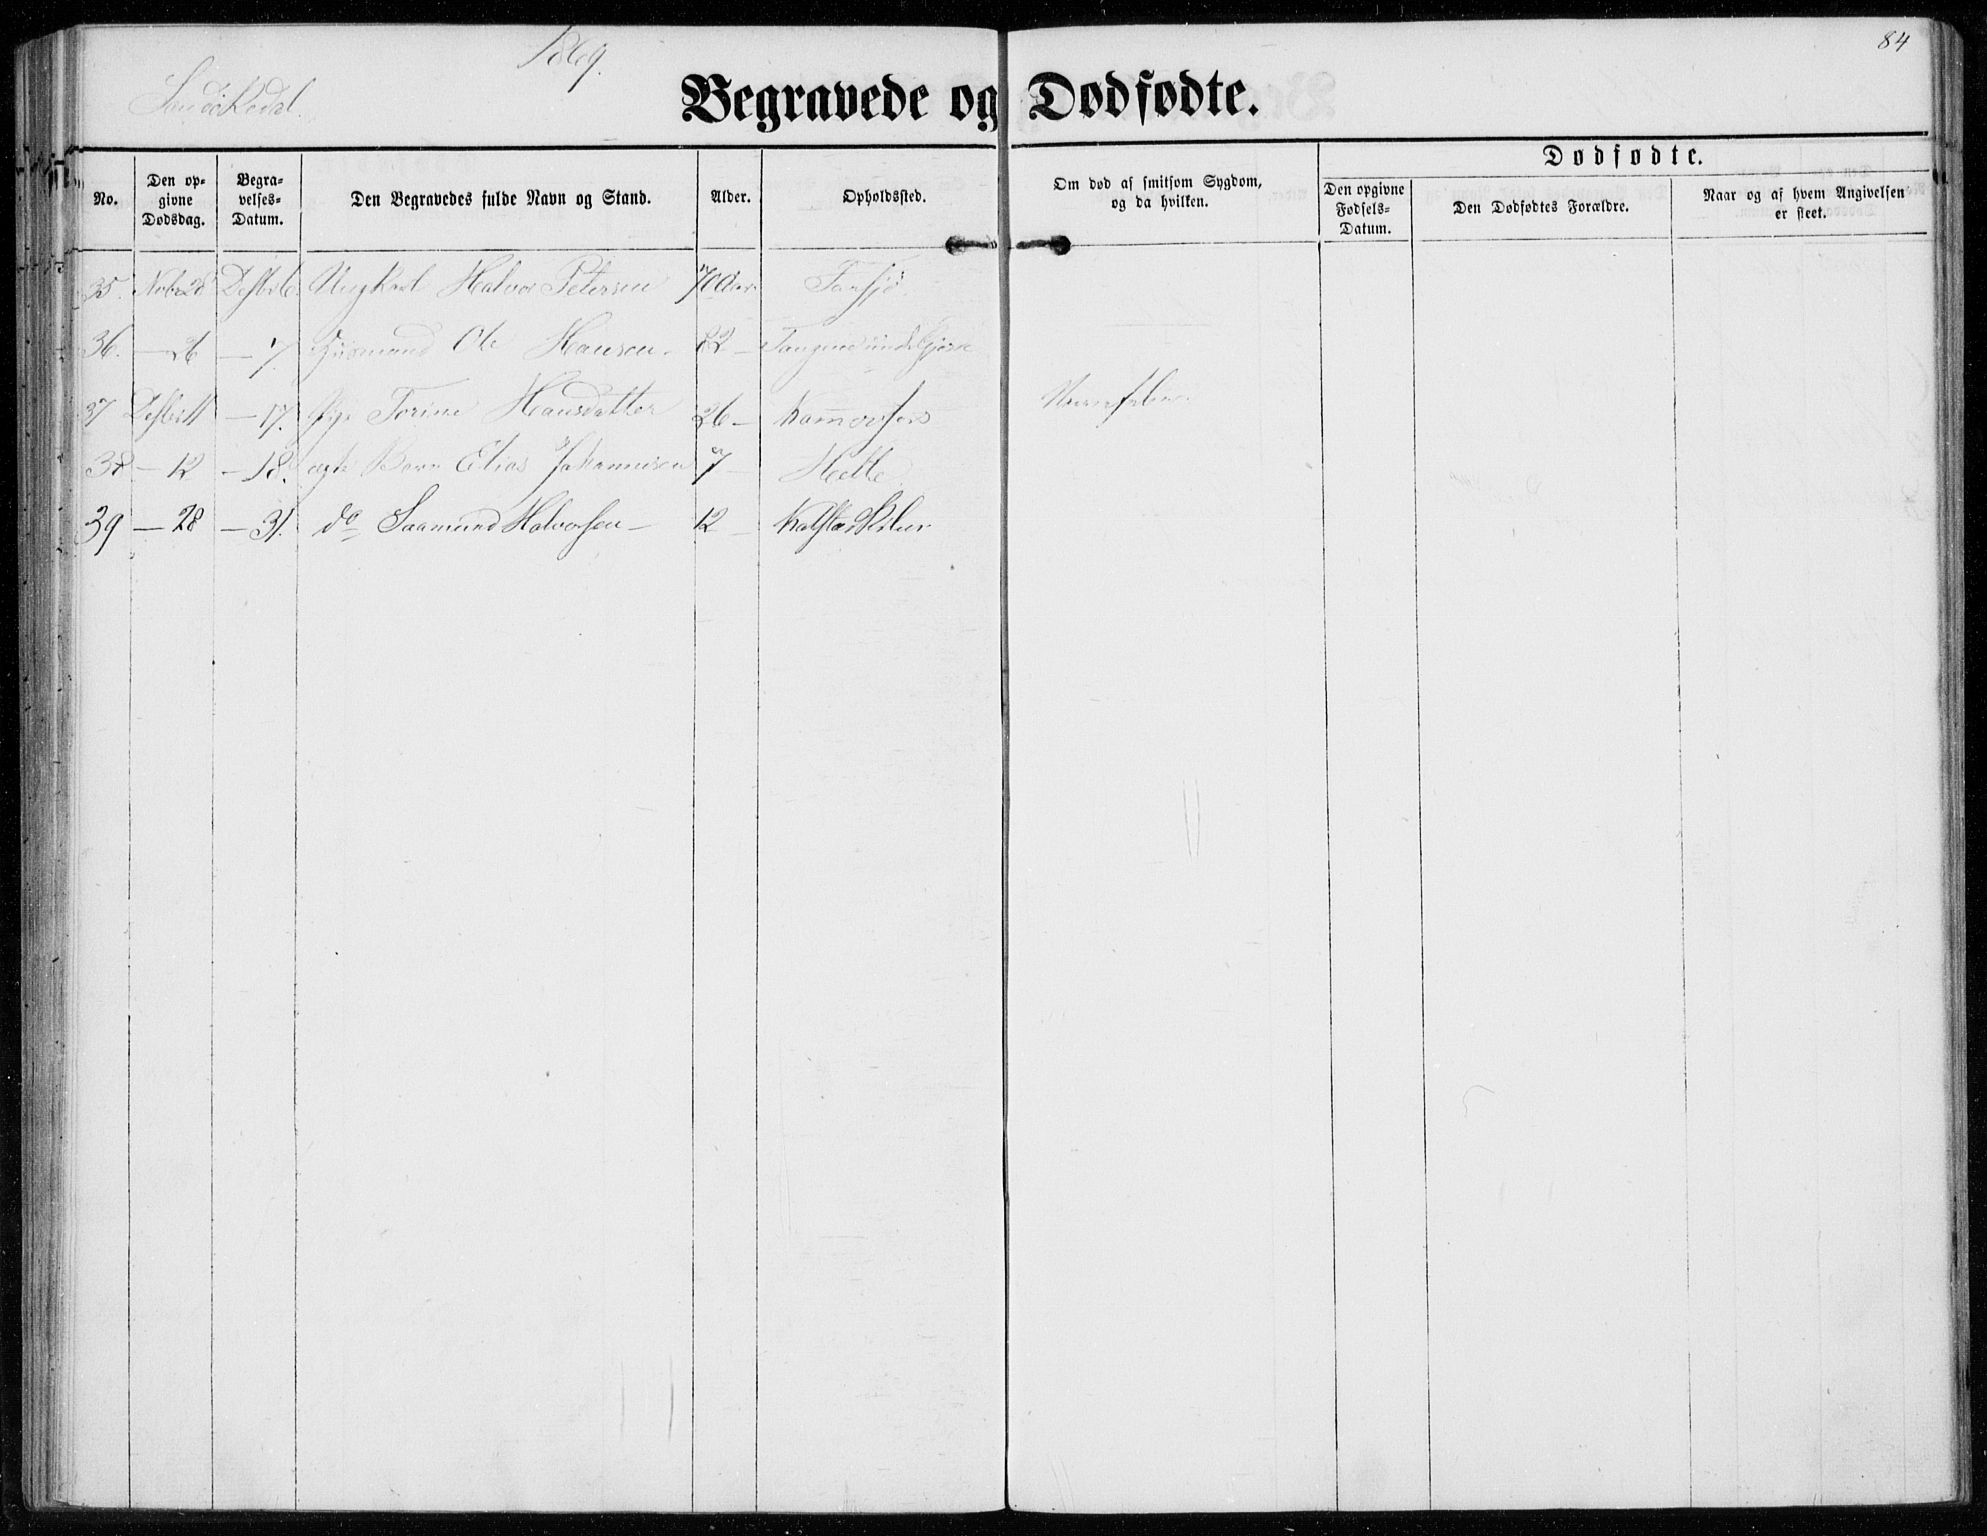 1869.
84
Sandökedal.
Begravede og Dødfødte.
No.
Den opgivne Dødsdag.
Begravelses-Datum.
Den Begravedes fulde Navn og Stand.
Alder.
Opholdssted.
Om død af smitsom Sygdom, og da hvilken.
Dødfødte.
Den opgivne Fødsels-Datum.
Den Dødfødtes Forældre.
Naar og af hvem Angivelsen er skeet.
35. Novbr 28 Desbr 6. Ungkarl Halvor Petersen 70 Aar.
36. — 26 — 7. Ole Hansen. 82 —
37 Desbr 11 — 17. Pige Torine Hansdatter 26 —
38 — 12 — 18. ægte Barn Elias Johannesen 7 — Helle
39 — 28 — 31. do Saamund Halvorsen — 12 —